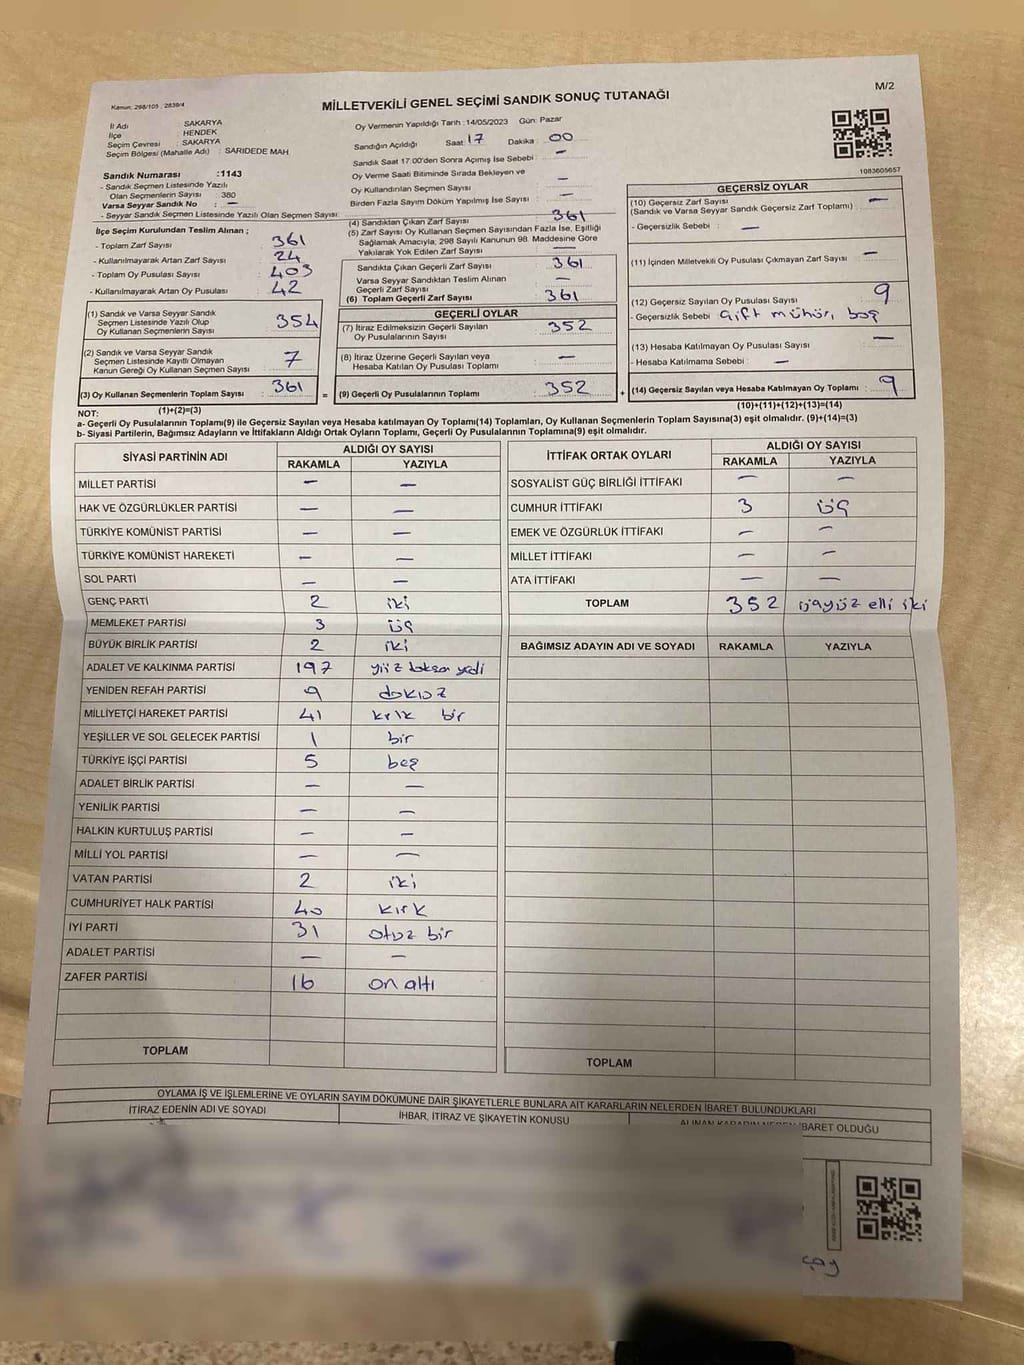 Kanun: 298/105 , 2839/4
MİLLETVEKİLİ GENEL SEÇİMİ SANDIK SONUÇ TUTANAĞI
M/2
İl Adı SAKARYA
İlçe HENDEK
Seçim Çevresi SAKARYA
Seçim Bölgesi (Mahalle Adı) : SARIDEDE MAH.
Oy Vermenin Yapıldığı Tarih : 14/05/2023 Gün: Pazar
Sandığın Açıldığı Saat: 17 Dakika : 00
Sandık Saat 17:00'den Sonra Açımış İse Sebebi : —
Oy Verme Saati Bitiminde Sırada Bekleyen ve
Oy Kullandırılan Seçmen Sayısı —
Birden Fazla Sayım Döküm Yapılmış İse Sayısı : —
1083605657
Sandık Numarası :1143
- Sandık Seçmen Listesinde Yazılı
Olan Seçmenlerin Sayısı 380
Varsa Seyyar Sandık No : —
- Seyyar Sandık Seçmen Listesinde Yazılı Olan Seçmen Sayısı:
İlçe Seçim Kurulundan Teslim Alınan ;
- Toplam Zarf Sayısı 361
- Kullanılmayarak Artan Zarf Sayısı 24
- Toplam Oy Pusulası Sayısı : 403
- Kullanılmayarak Artan Oy Pusulası : 42
(1) Sandık ve Varsa Seyyar Sandık
Seçmen Listesinde Yazılı Olup
Oy Kullanan Seçmenlerin Sayısı 354
(2) Sandık ve Varsa Seyyar Sandık
Seçmen Listesinde Kayıtlı Olmayan
Kanun Gereği Oy Kullanan Seçmen Sayısı 7
(3) Oy Kullanan Seçmenlerin Toplam Sayısı 361
(1)+(2)=(3)
(4) Sandıktan Çıkan Zarf Sayısı 361
(5) Zarf Sayısı Oy Kullanan Seçmen Sayısından Fazla İse, Eşitliği
Sağlamak Amacıyla, 298 Sayılı Kanunun 98. Maddesine Göre
Yakılarak Yok Edilen Zarf Sayısı —
Sandıkta Çıkan Geçerli Zarf Sayısı 361
Varsa Seyyar Sandıktan Teslim Alınan
Geçerli Zarf Sayısı —
(6) Toplam Geçerli Zarf Sayısı 361
GEÇERLİ OYLAR
(7) İtiraz Edilmeksizin Geçerli Sayılan
Oy Pusulalarının Sayısı 352
(8) İtiraz Üzerine Geçerli Sayılan veya
Hesaba Katılan Oy Pusulası Toplamı —
= (9) Geçerli Oy Pusulalarının Toplamı 352 +
GEÇERSİZ OYLAR
(10) Geçersiz Zarf Sayısı —
(Sandık ve Varsa Seyyar Sandık Geçersiz Zarf Toplamı)
- Geçersizlik Sebebi : —
(11) İçinden Milletvekili Oy Pusulası Çıkmayan Zarf Sayısı —
(12) Geçersiz Sayılan Oy Pusulası Sayısı 9
- Geçersizlik Sebebi çift mühür, boş
(13) Hesaba Katılmayan Oy Pusulası Sayısı —
- Hesaba Katılmama Sebebi : —
(14) Geçersiz Sayılan veya Hesaba Katılmayan Oy Toplamı 9
(10)+(11)+(12)+(13)=(14)
NOT:
a- Geçerli Oy Pusulalarının Toplamı(9) ile Geçersiz Sayılan veya Hesaba katılmayan Oy Toplamı(14) Toplamları, Oy Kullanan Seçmenlerin Toplam Sayısına(3) eşit olmalıdır. (9)+(14)=(3)
b- Siyasi Partilerin, Bağımsız Adayların ve İttifakların Aldığı Ortak Oyların Toplamı, Geçerli Oy Pusulalarının Toplamına(9) eşit olmalıdır.
SİYASİ PARTİNİN ADI ALDIĞI OY SAYISI
RAKAMLA YAZIYLA
MİLLET PARTİSİ — —
HAK VE ÖZGÜRLÜKLER PARTİSİ — —
TÜRKİYE KOMÜNİST PARTİSİ — —
TÜRKİYE KOMÜNİST HAREKETİ — —
SOL PARTİ — —
GENÇ PARTİ 2 iki
MEMLEKET PARTİSİ 3 üç
BÜYÜK BİRLİK PARTİSİ 2 iki
ADALET VE KALKINMA PARTİSİ 197 yüz doksan yedi
YENİDEN REFAH PARTİSİ 9 dokuz
MİLLİYETÇİ HAREKET PARTİSİ 41 kırk bir
YEŞİLLER VE SOL GELECEK PARTİSİ 1 bir
TÜRKİYE İŞÇİ PARTİSİ 5 beş
ADALET BİRLİK PARTİSİ — —
YENİLİK PARTİSİ — —
HALKIN KURTULUŞ PARTİSİ — —
MİLLİ YOL PARTİSİ — —
VATAN PARTİSİ 2 iki
CUMHURİYET HALK PARTİSİ 40 kırk
İYİ PARTİ 31 otuz bir
ADALET PARTİSİ — —
ZAFER PARTİSİ 16 on altı
TOPLAM
İTTİFAK ORTAK OYLARI ALDIĞI OY SAYISI
RAKAMLA YAZIYLA
SOSYALİST GÜÇ BİRLİĞİ İTTİFAKI — —
CUMHUR İTTİFAKI 3 üç
EMEK VE ÖZGÜRLÜK İTTİFAKI — —
MİLLET İTTİFAKI — —
ATA İTTİFAKI — —
TOPLAM 352 üçyüz elli iki
BAĞIMSIZ ADAYIN ADI VE SOYADI RAKAMLA YAZIYLA
TOPLAM
OYLAMA İŞ VE İŞLEMLERİNE VE OYLARIN SAYIM DÖKÜMÜNE DAİR ŞİKAYETLERLE BUNLARA AİT KARARLARIN NELERDEN İBARET BULUNDUKLARI
İTİRAZ EDENİN ADI VE SOYADI
İHBAR, İTİRAZ VE ŞİKAYETİN KONUSU
ALINAN KARARIN NEDEN İBARET OLDUĞU